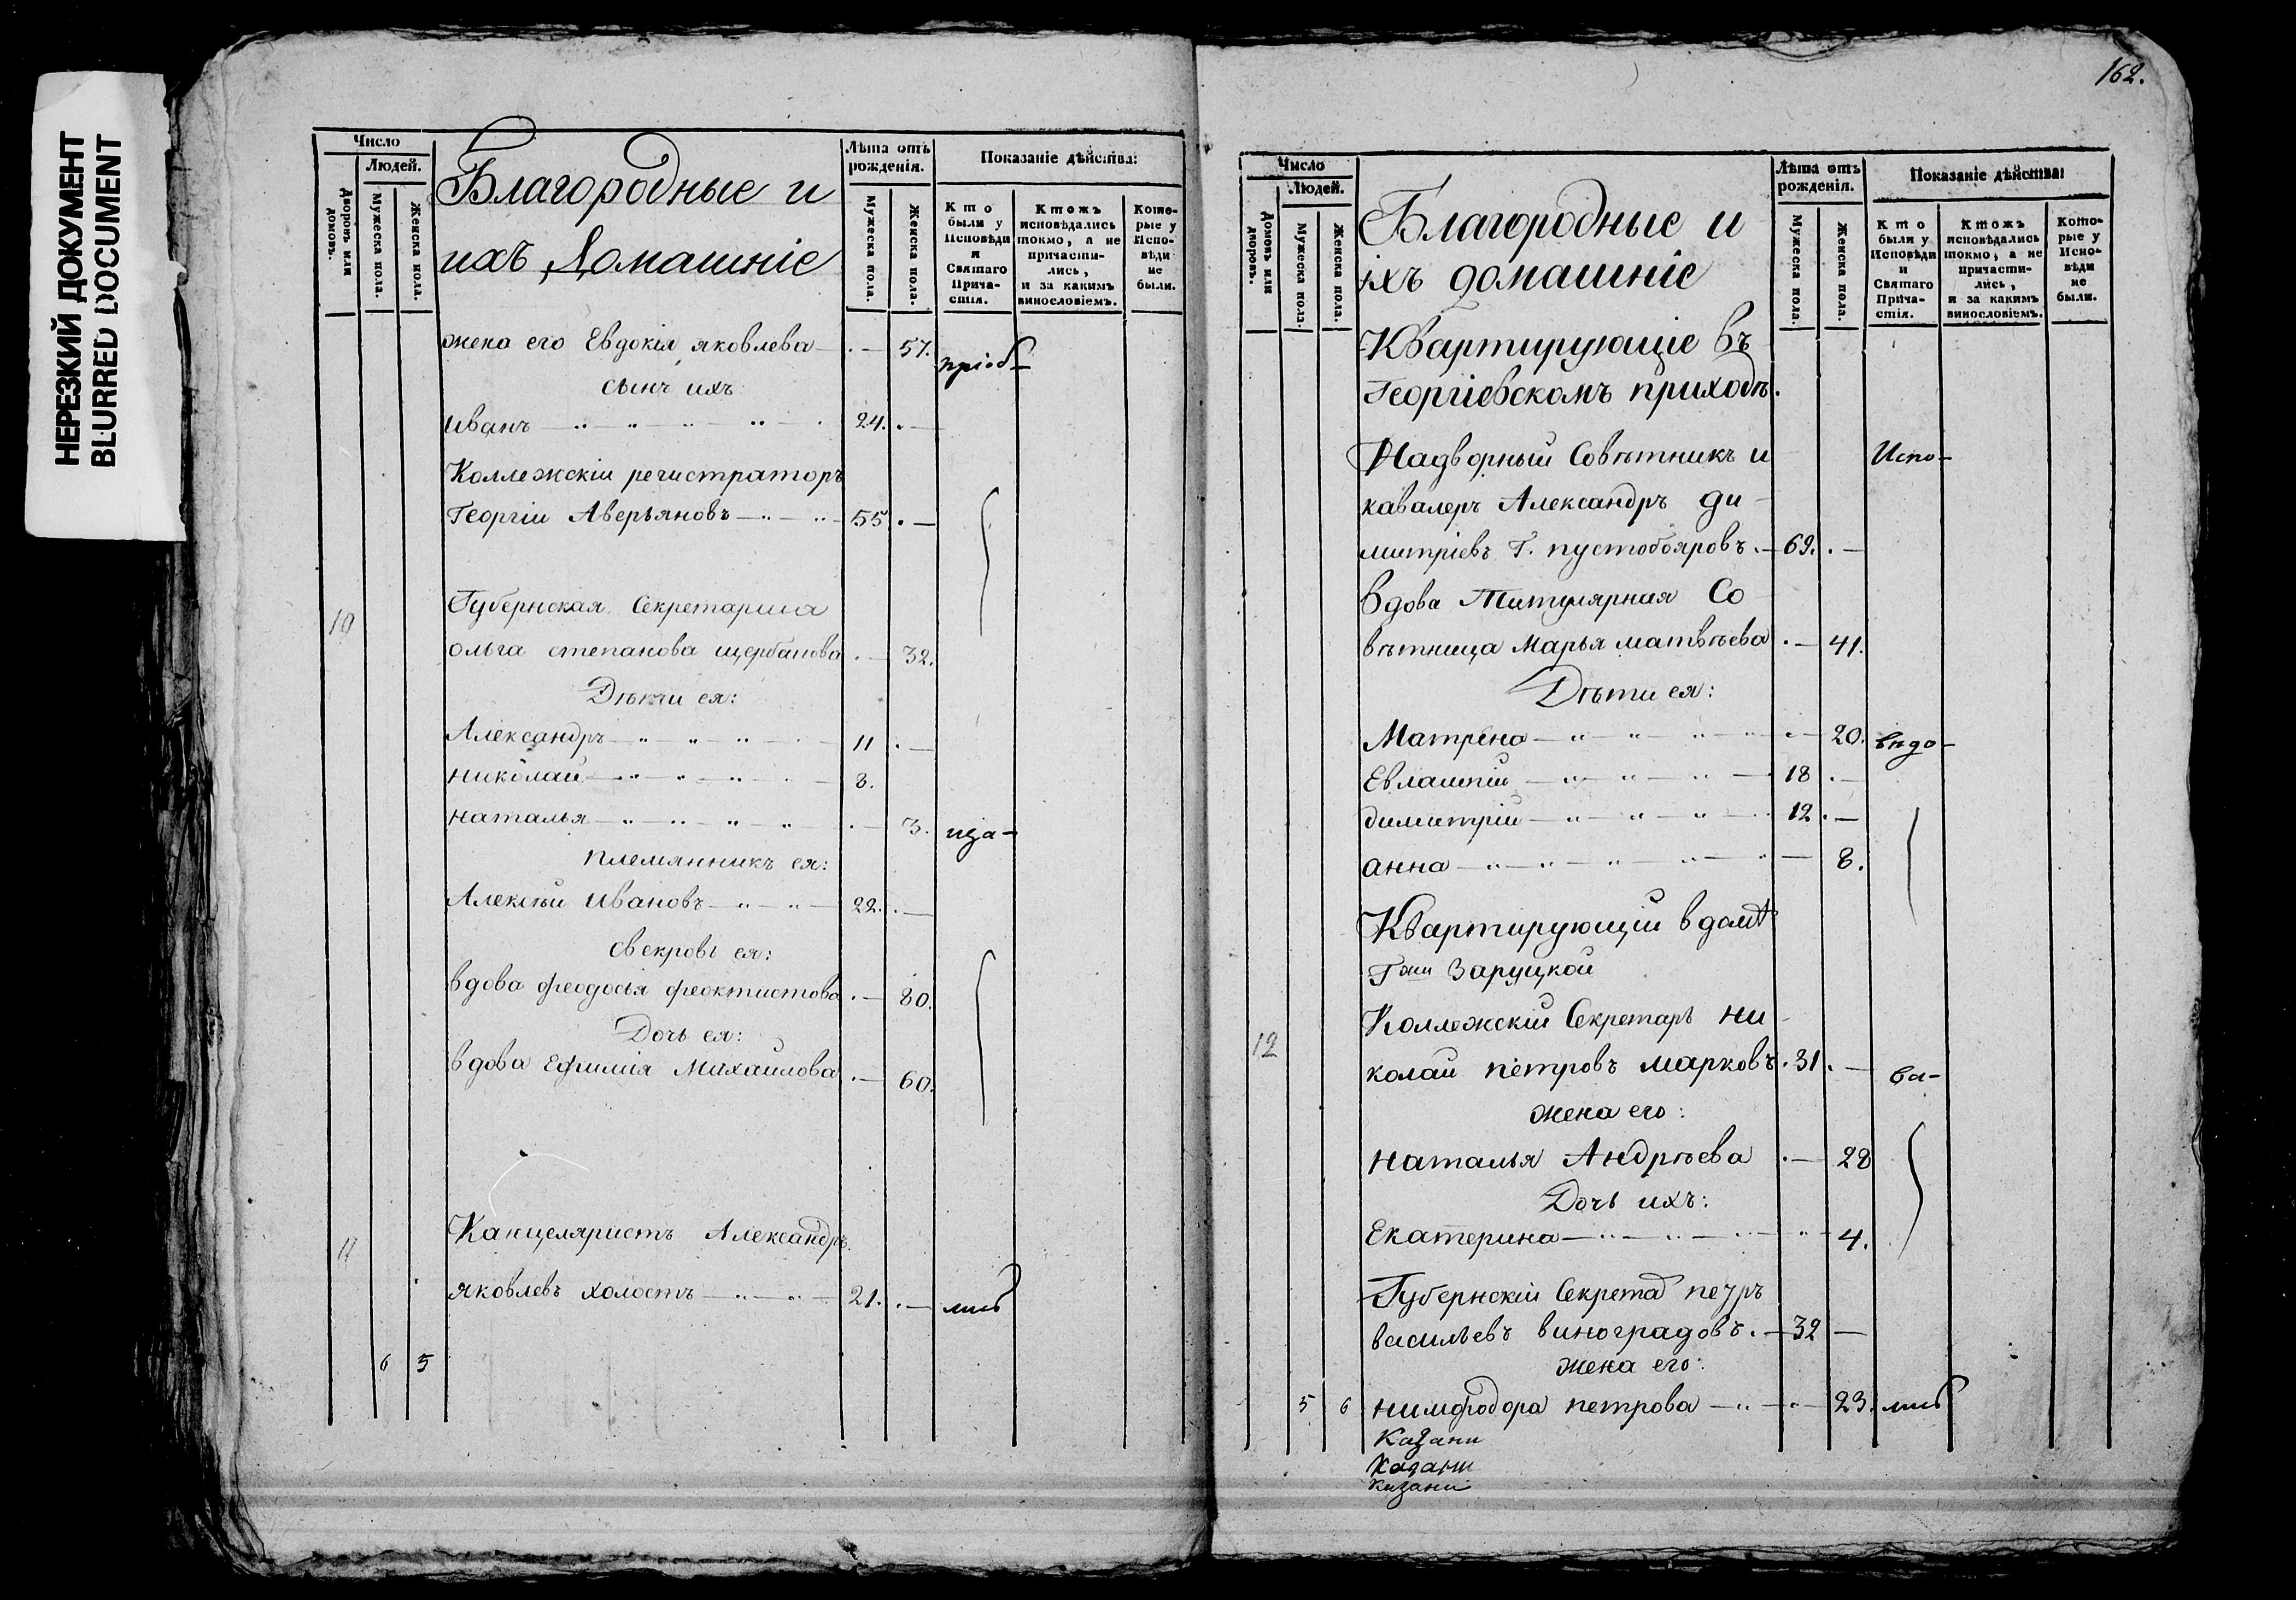 НЕРЕЗКИЙ ДОКУМЕНТ
BLURRED DOCUMENT
Число
Людей.
Дворовъ или домовъ.
Мужеска пола.
Женска пола.
Благородные и
ихъ Домашніе
Лѣта отъ рожденія.
Мужеска пола.
Женска пола.
Показаніе дѣйства:
Кто были у Исповѣди и Святаго Причастія.
Ктожъ исповѣдались токмо, а не причастились, и за какимъ винословіемъ.
Которые у Исповѣди не были.
жена его Евдокія яковлева — . — 57. пріоб—
сынъ ихъ
иванъ — 24. . —
Коллежскіи регистраторъ
Георгіи Аверьяновъ — 55 . —
Губернская Секретарша
10
ольга степанова щербанова . — 32.
Дѣти ея:
Александръ — 11 . —
николаи — 8.
наталья — . — 3. ща—
племянникъ ея:
Алексѣи ивановъ — 22. . —
свекровь ея:
вдова феодосья феоктистова . — 80.
Дочь ея:
вдова Ефимія Михаилова . — 60.
Канцеляристъ Александръ
11
яковлевъ холостъ — 21. . — лись
6 5
162.
Число
Людей.
Домовъ или дворовъ.
Мужеска пола.
Женска пола.
Благородные и
іхъ домашніе
Лѣта отъ рожденія.
Мужеска пола.
Женска пола.
Показаніе дѣйства:
Кто были у Исповѣди и Святаго Причастія.
Ктожъ исповѣдались токмо, а не причастились, и за какимъ винословіемъ.
Которые у Исповѣди не были.
Квартирующіе въ
Георгіевскомъ приходѣ.
Надворный Совѣтникъ и Испо—
кавалеръ Александръ ди—
митріевъ Г. пустобояровъ . — 69. . —
Вдова Титулярная Со—
вѣтница Марья матвѣева . — 41.
Дѣти ея:
Матрена — . — 20. вѣдо—
Евлампій — 18 . —
димитріи — 12 . —
анна — 8.
Квартирующіи в домѣ
Гжи Заруцкой
Коллежскій Секретарь ни—
12
колаи петровъ марковъ . 31 . — ва—
жена его:
наталья Андрѣева . — 28
Дочь ихъ:
Екатерина — 4.
Губернскіи Секретар петръ
васильевъ виноградовъ . — 32 —
жена его:
5 6 нимфодора петрова — 23. лись
Казани
Казани
Казани